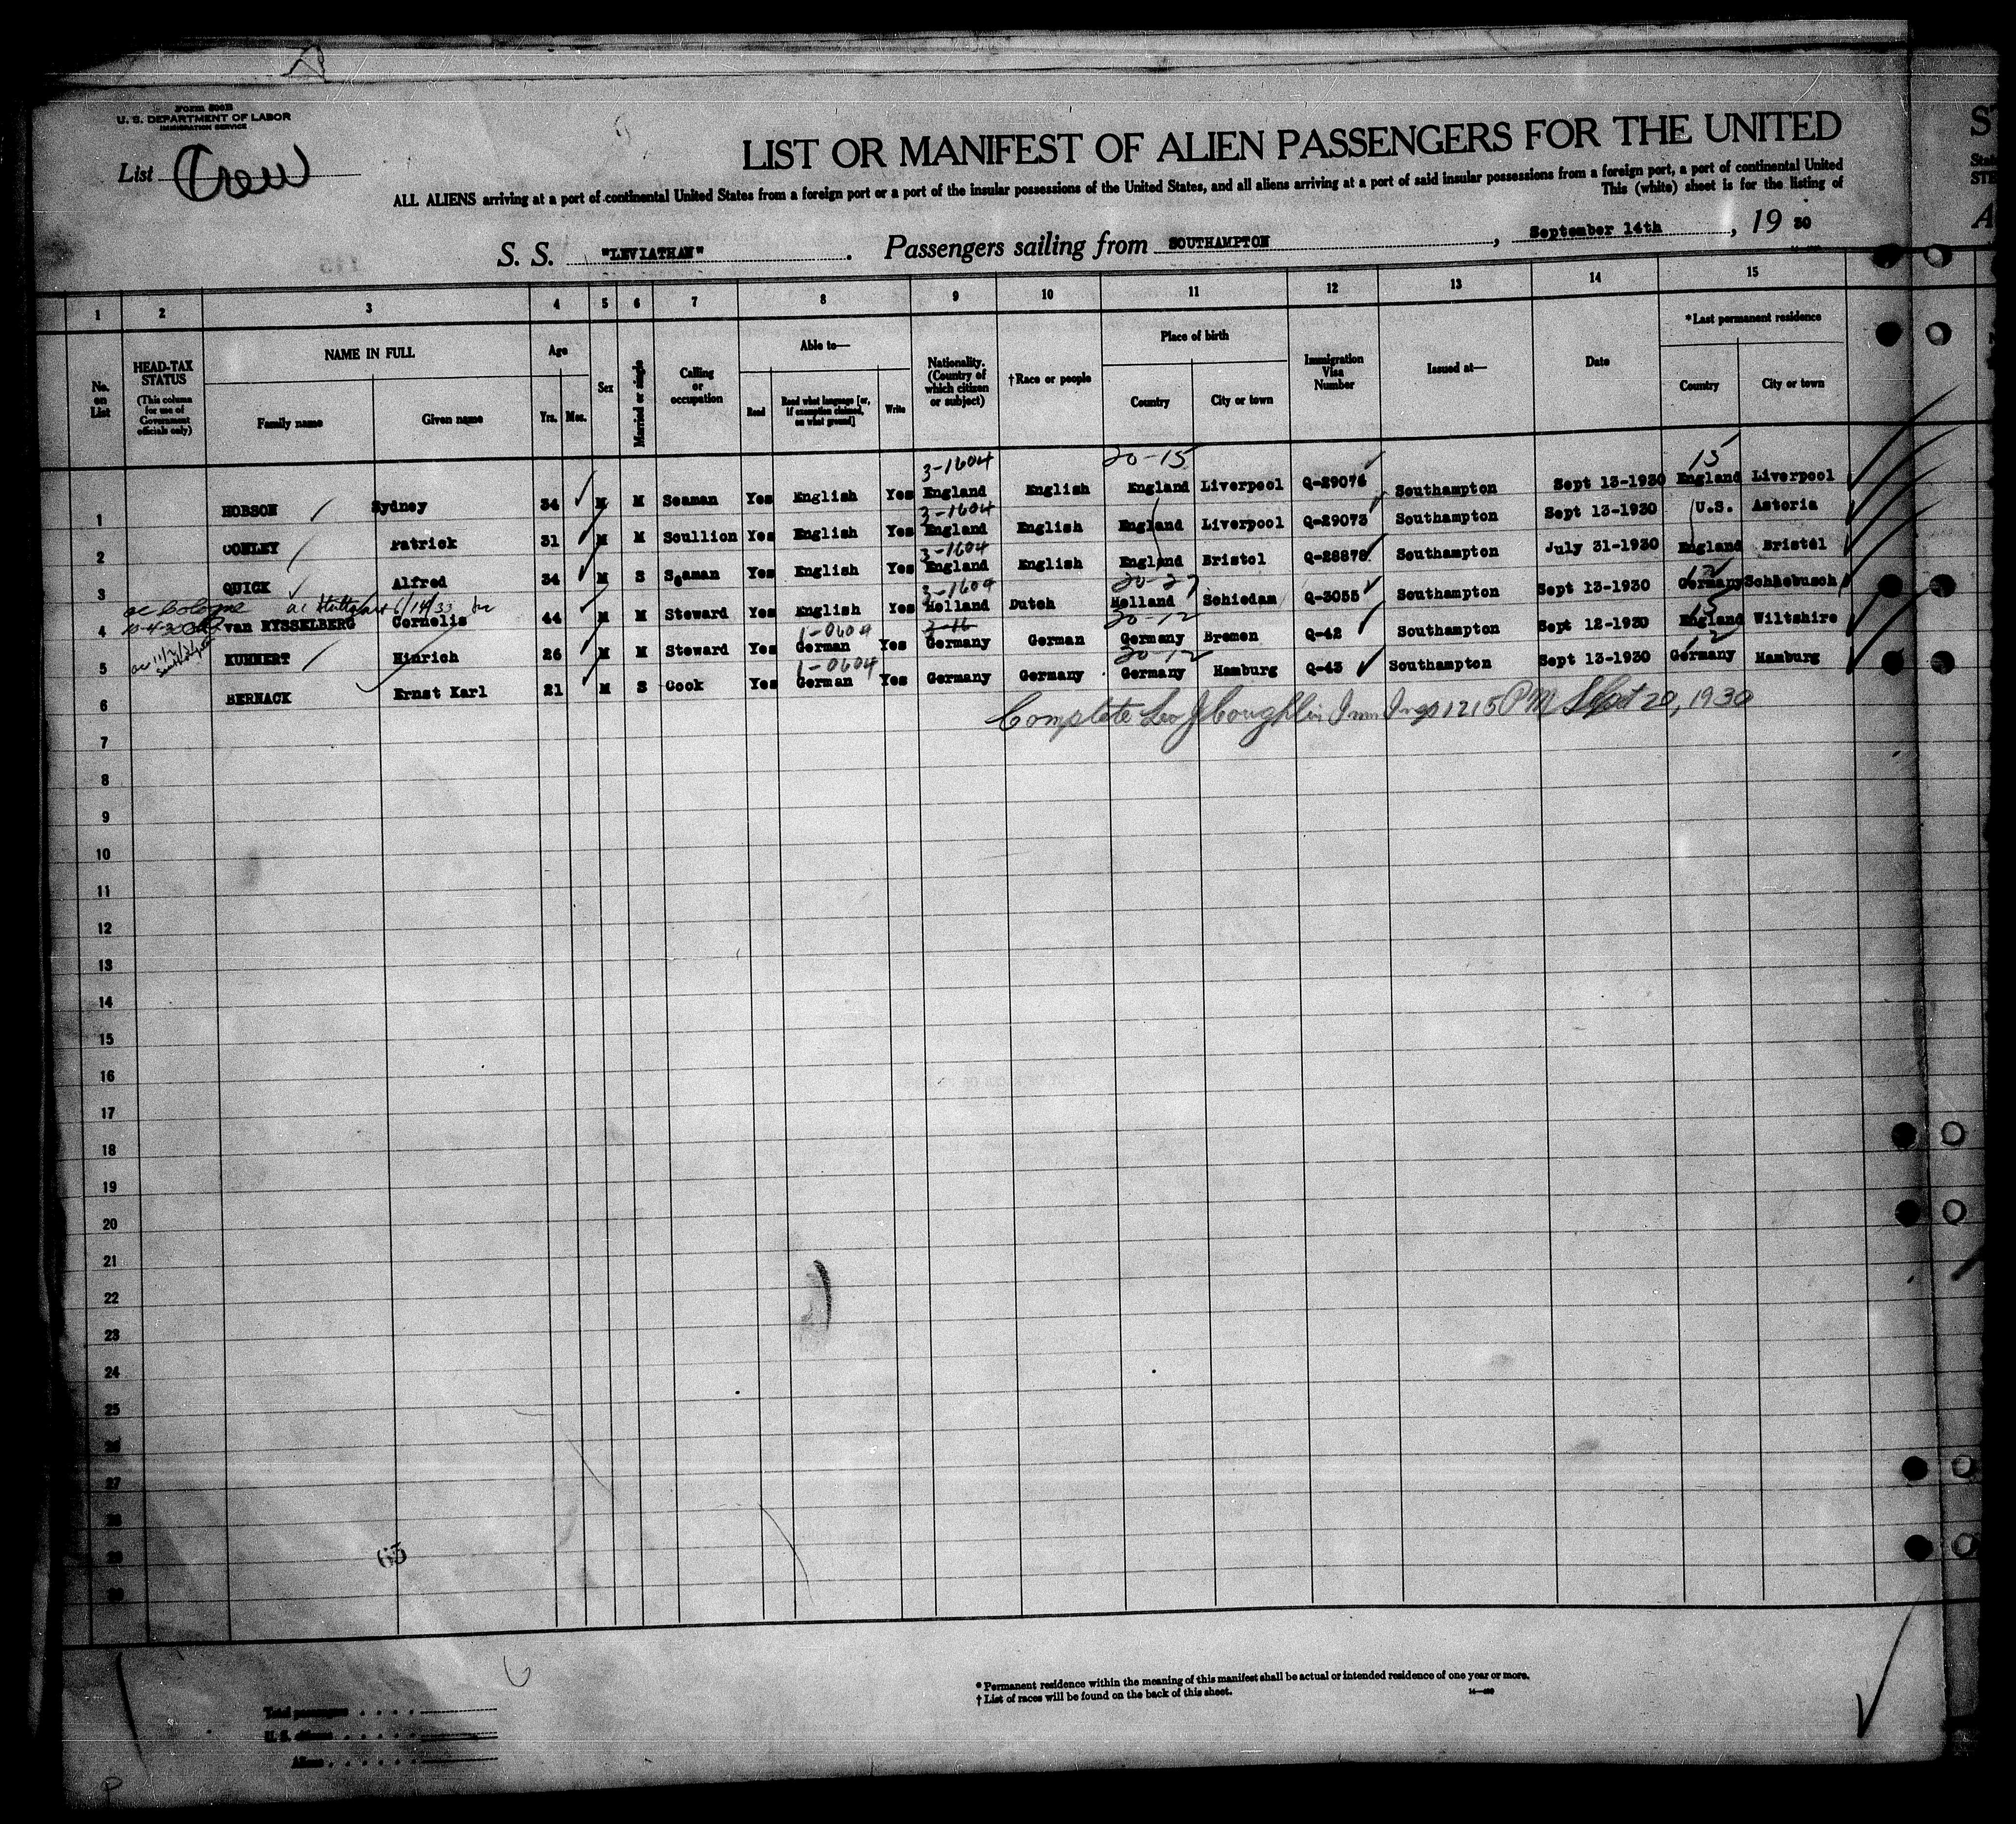 Form 500B
U. S. DEPARTMENT OF LABOR
IMMIGRATION SERVICE
List Crew
LIST OR MANIFEST OF ALIEN PASSENGERS FOR THE UNITED
ALL ALIENS arriving at a port of continental United States from a foreign port or a port of the insular possessions of the United States, and all aliens arriving at a port of said insular possessions from a foreign port, a port of continental United
This (white) sheet is for the listing of
S. S. "LEVIATHAN". Passengers sailing from SOUTHAMPTON, September 14th, 19 30
1 2 3 4 5 6 7 8 9 10 11 12 13 14 15
No. on List
HEAD-TAX STATUS (This column for use of Government officials only)
NAME IN FULL
Family name Given name
Age
Yrs. Mos.
Sex
Married or single
Calling or occupation
Able to—
Read Read what language [or, if exemption claimed, on what ground] Write
Nationality. (Country of which citizen or subject)
†Race or people
Place of birth
Country City or town
Immigration Visa Number
Issued at—
Date
*Last permanent residence
Country City or town
3-1604 20-15 15
1 HOBSON Sydney 34 M M Seaman Yes English Yes England English England Liverpool Q-29076 Southampton Sept 13-1930 England Liverpool
3-1604
2 CONLEY Patrick 31 M M Scullion Yes English Yes England English England Liverpool Q-29073 Southampton Sept 13-1930 U.S. Astoria
3-1604
3 QUICK Alfred 34 M S Seaman Yes English Yes England English England Bristol Q-28878 Southampton July 31-1930 England Bristol
ac Cologne ac Stuttgart 6/14/33 3-1604 20-27 12
4 van RYSSELBERG Cornelis 44 M M Steward Yes English Yes Holland Dutch Holland Schiedam Q-3055 Southampton Sept 13-1930 Germany Schlebusch
1-0604 3-16 20-12 15
5 KUHNERT Hinrich 26 M M Steward Yes German Yes Germany German Germany Bremen Q-42 Southampton Sept 12-1930 England Wiltshire
1-0604 20-12 12
6 BERNACK Ernst Karl 21 M S Cook Yes German Yes Germany Germany Germany Hamburg Q-43 Southampton Sept 13-1930 Germany Hamburg
Complete Leo J Coughlin Imm Insp 1215 PM Sept 20, 1930
7
8
9
10
11
12
13
14
15
16
17
18
19
20
21
22
23
24
25
26
27
28
29
30
65
6
* Permanent residence within the meaning of this manifest shall be actual or intended residence of one year or more.
† List of races will be found on the back of this sheet.
Total passengers
U. S. citizens
Aliens